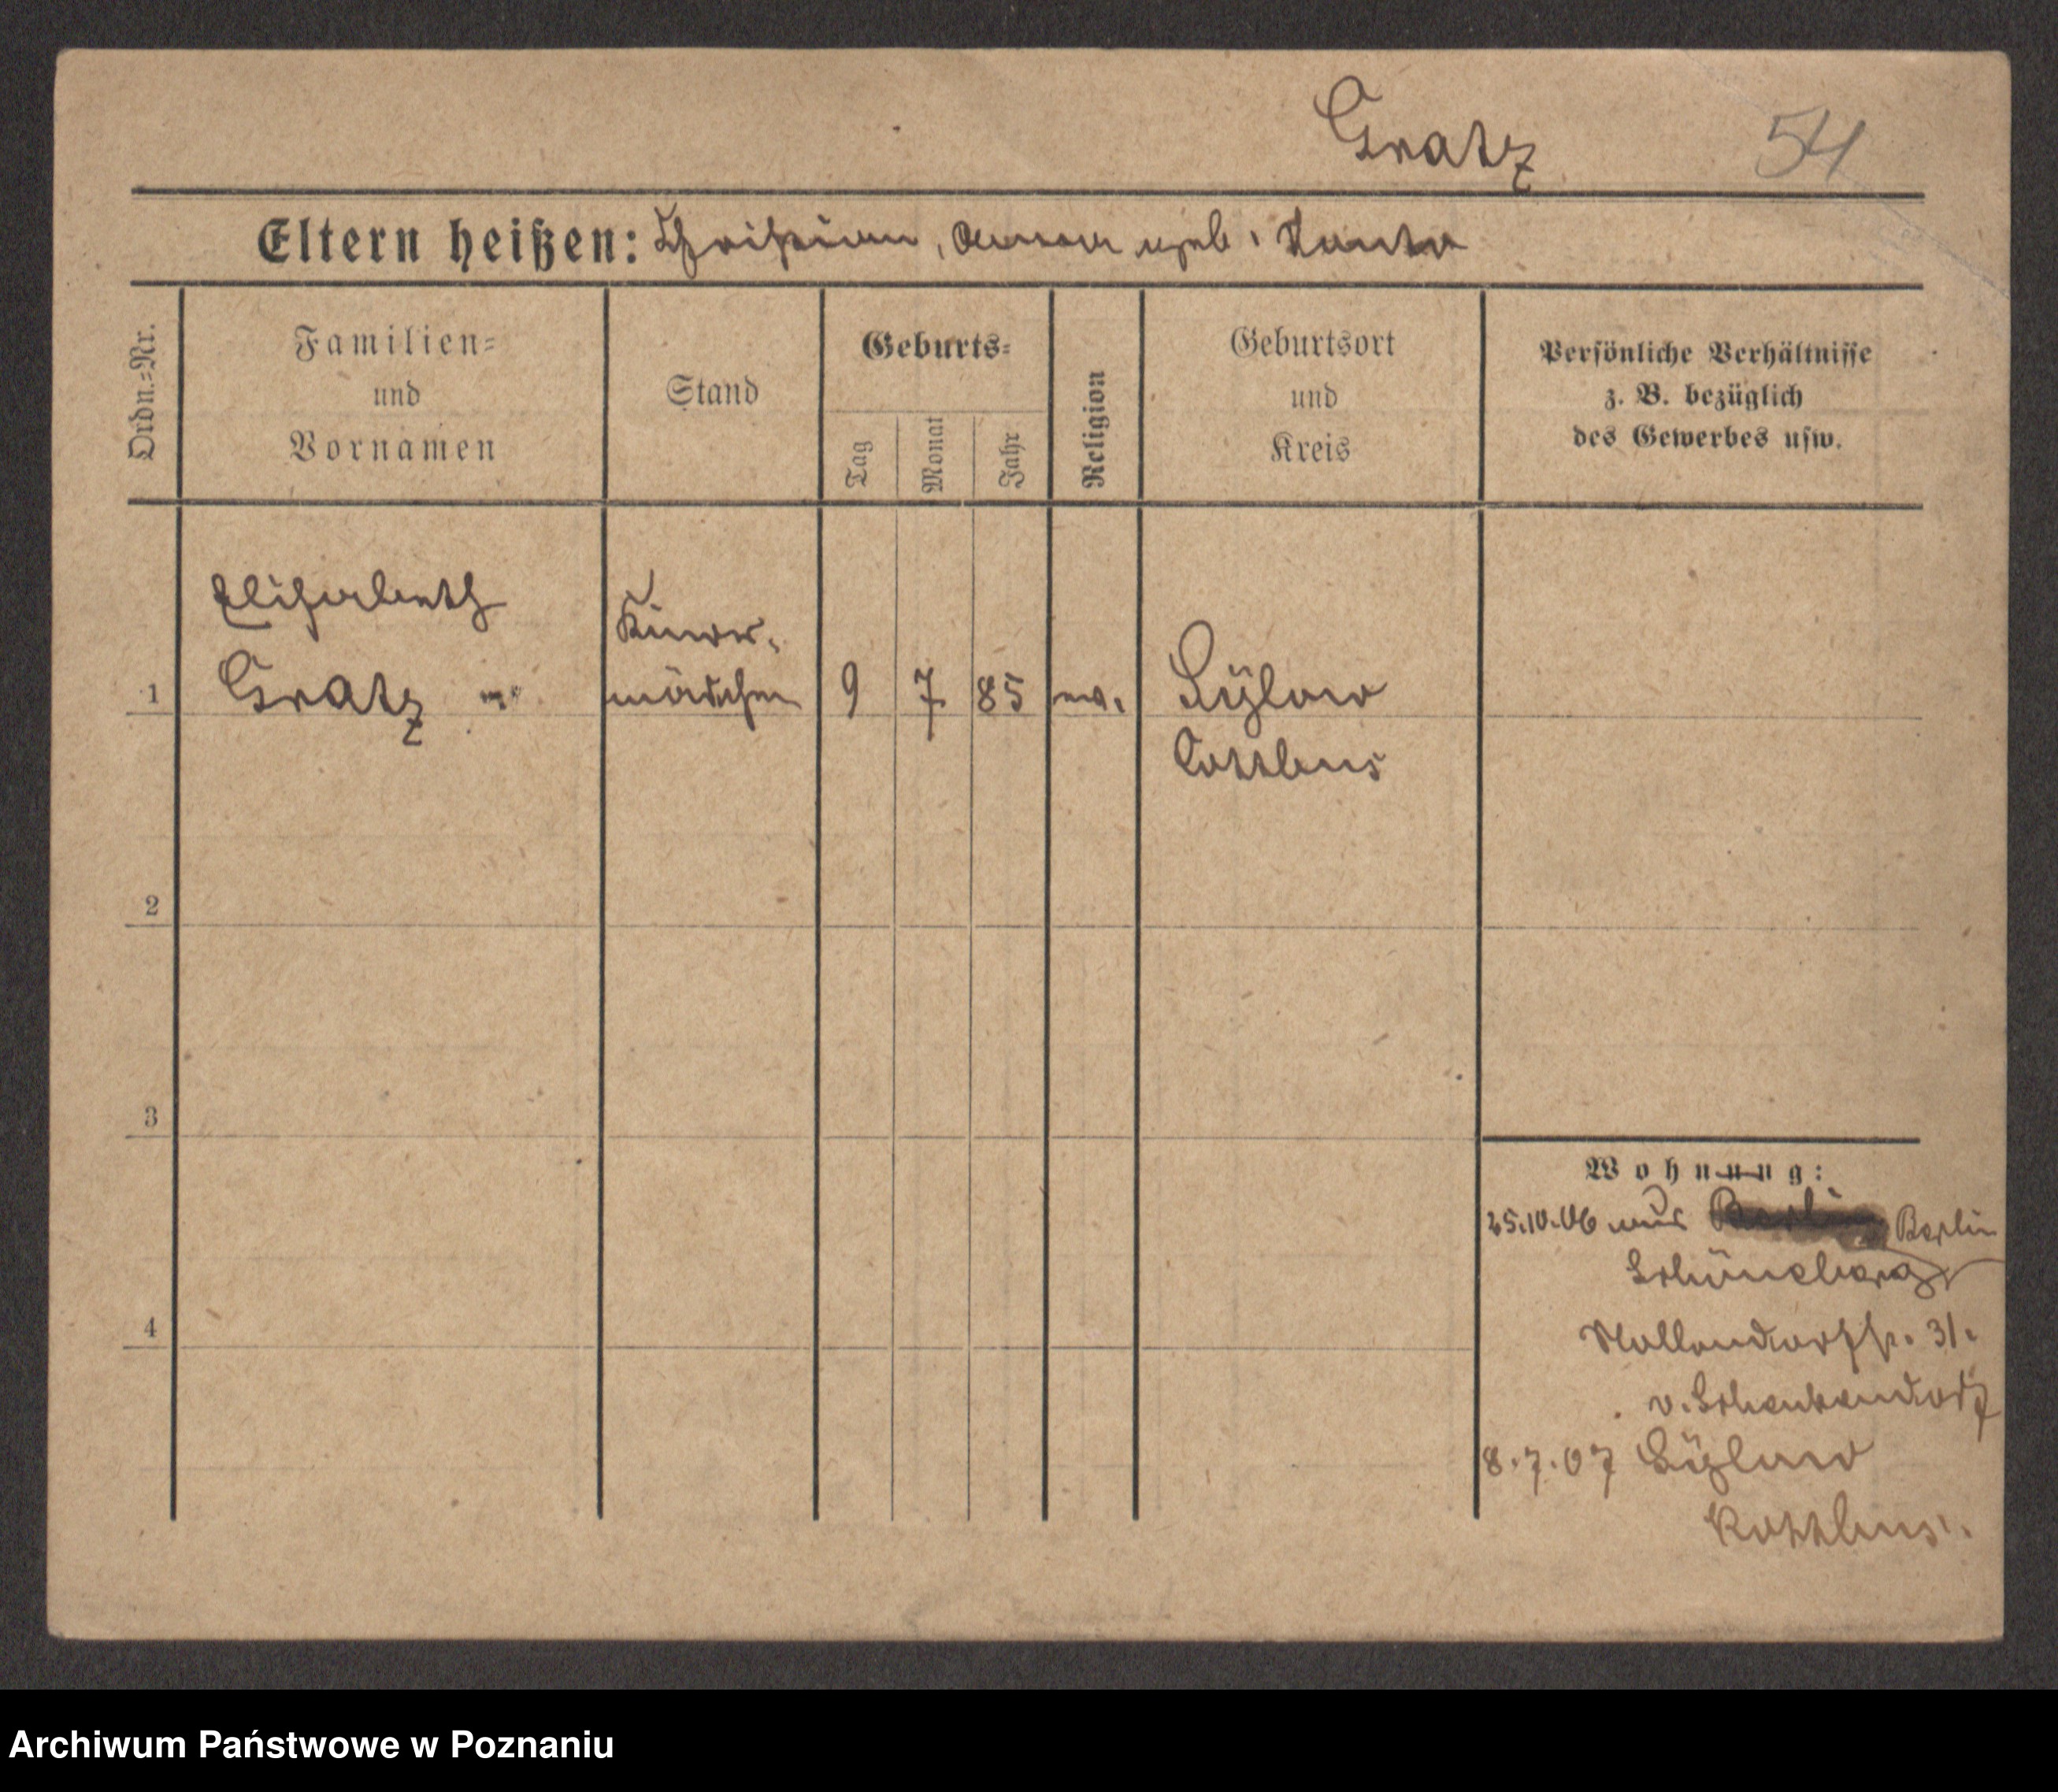 Gratz 54
Eltern heißen: Christian, Anna geb.
Ordn.=Nr.
Familien=
und
Vornamen
Stand
Geburts=
Tag
Monat
Jahr
Religion
Geburtsort
und
Kreis
Persönliche Verhältnisse
z. B. bezüglich
des Gewerbes usw.
Elisabeth
Kinder-
1 Gratz mädchen 9 7 85 ev. Sylow
Cottbus
2
3
Wohnung:
25.10.06 aus Berlin Berlin
Schöneberg
4
Nollendorfstr. 31.
v. Schenkendorf
8.7.07 Sylow
Kottbus.
Archiwum Państwowe w Poznaniu